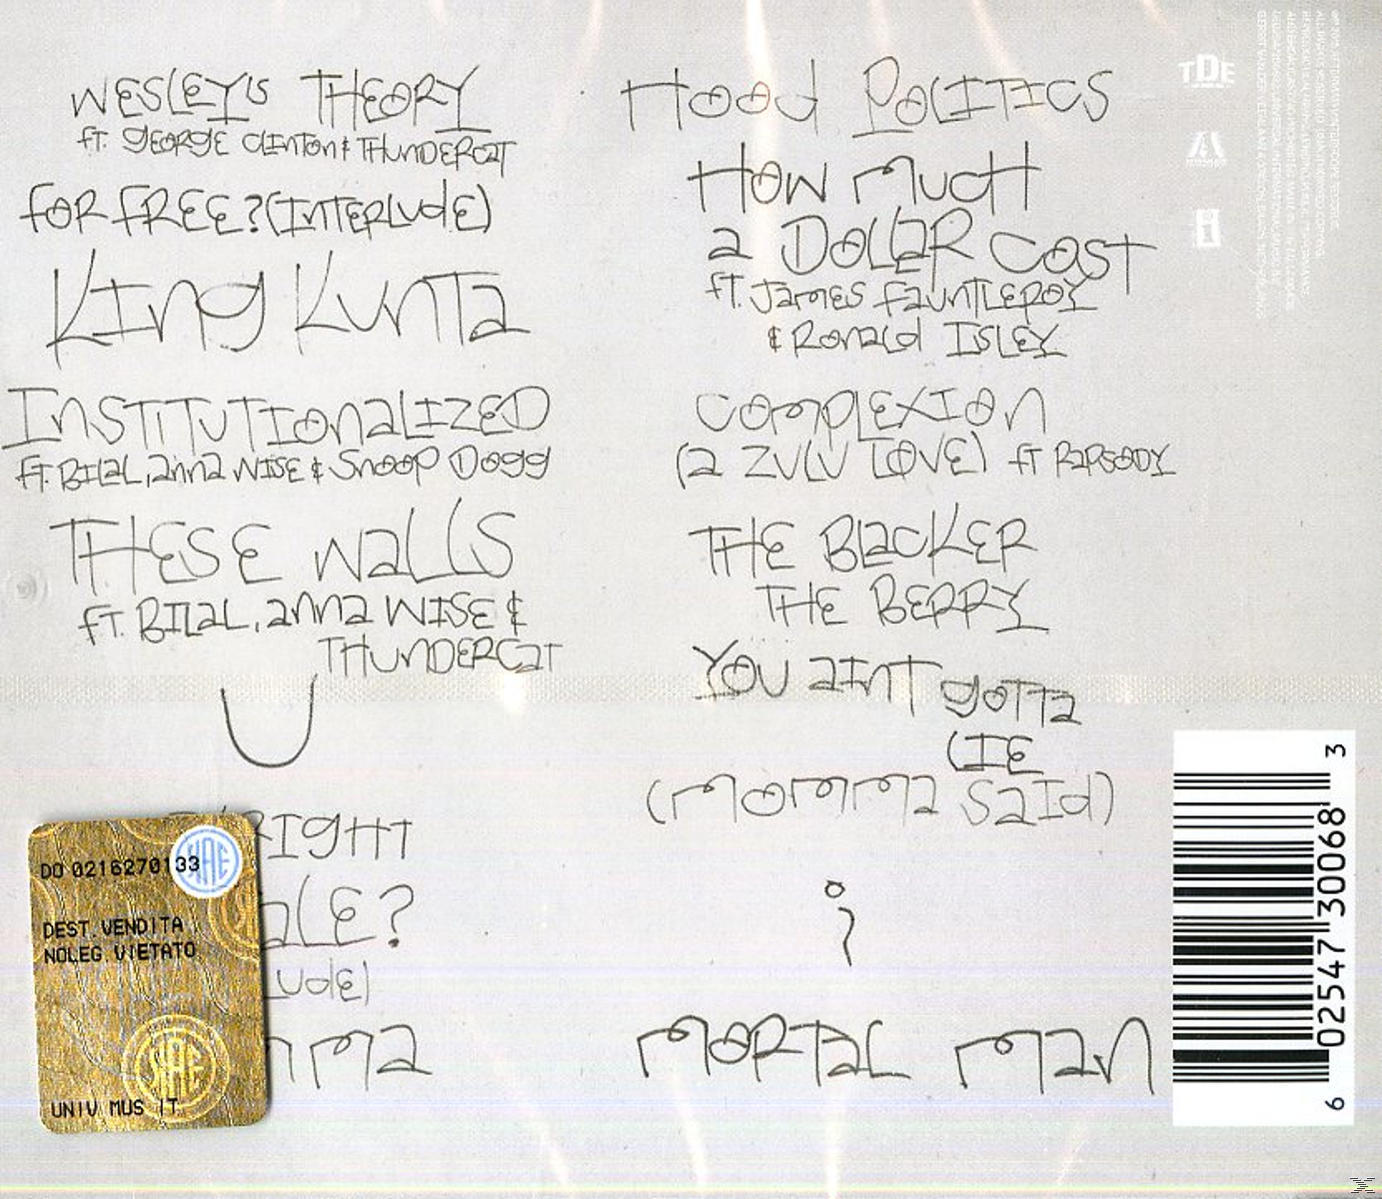 WESLEY'S THEORY
ft. GEORGE CLINTON & THUNDERCAT
FOR FREE? (INTERLUDE)
KING KUNTA
INSTITUTIONALIZED
ft. BILAL, ANNA WISE & SNOOP DOGG
THESE WALLS
ft. BILAL, ANNA WISE &
THUNDERCAT
U
RIGHT
ALE?
LUDE)
MMA
HOOD POLITICS
HOW MUCH
A DOLLAR COST
ft. JAMES FAUNTLEROY
& RONALD ISLEY
COMPLEXION
(A ZULU LOVE) ft RAPSODY
THE BLACKER
THE BERRY
YOU AINT GOTTA
LIE
(MOMMA SAID)
i
MORTAL MAN
TDE
DO 0216270133
SIAE
DEST. VENDITA
NOLEG. VIETATO
SIAE
UNIV MUS IT.
6 02547 30068 3